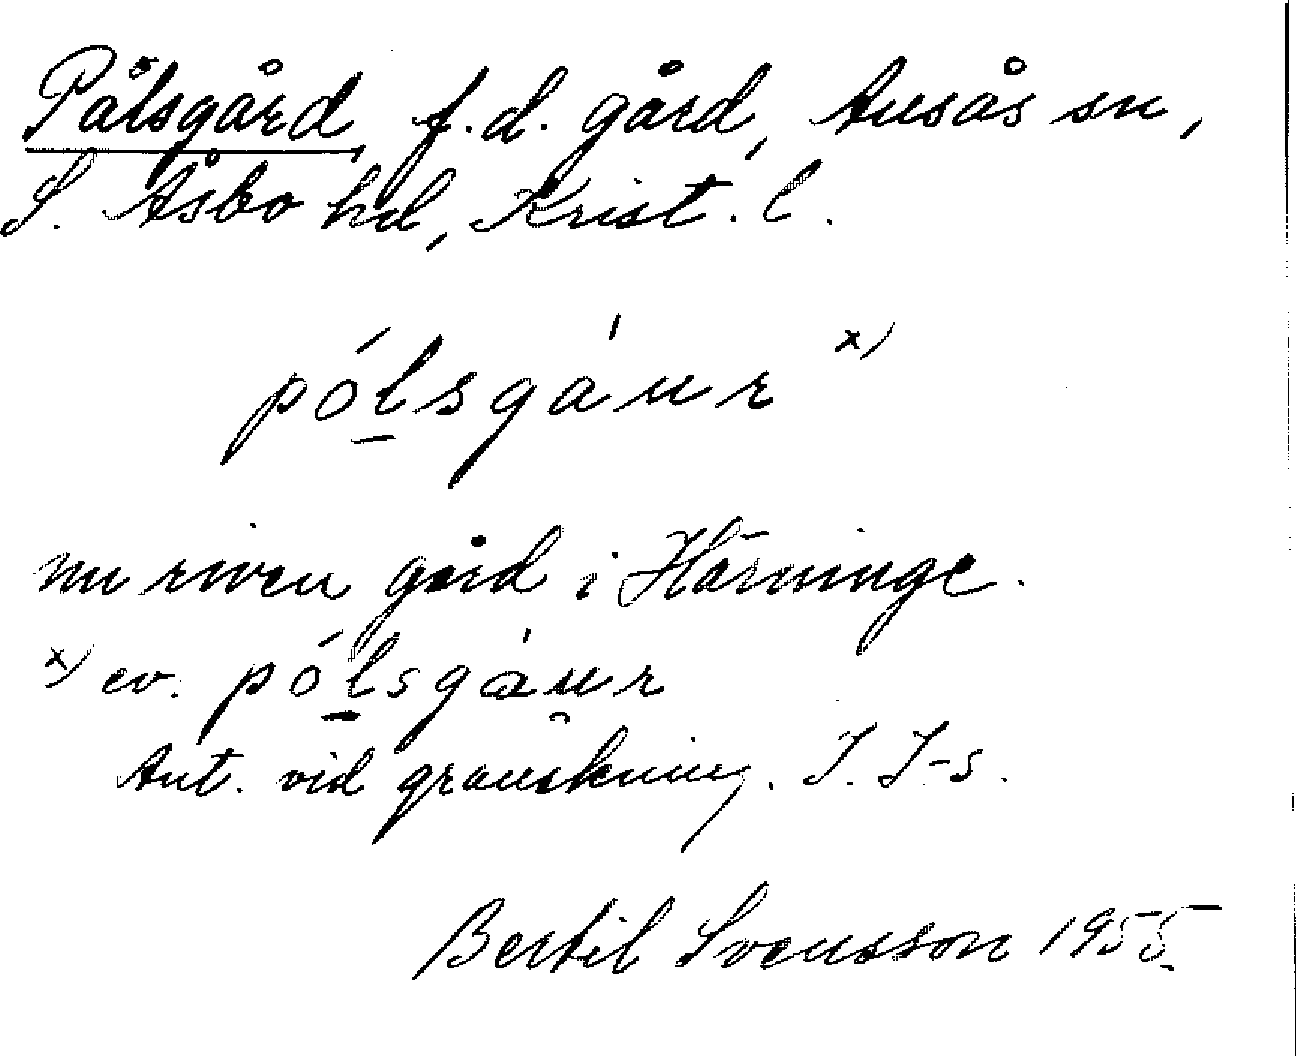 Pålsgård f.d. gård, Ausås sn,
S. Åsbo hd, Krist. l.
pól̲sgáur x)
nu riven gård i Härninge.
x) ev. pól̲sgáu̯r
Ant. vid granskning. I. I-s.
Bertil Svensson 1955.